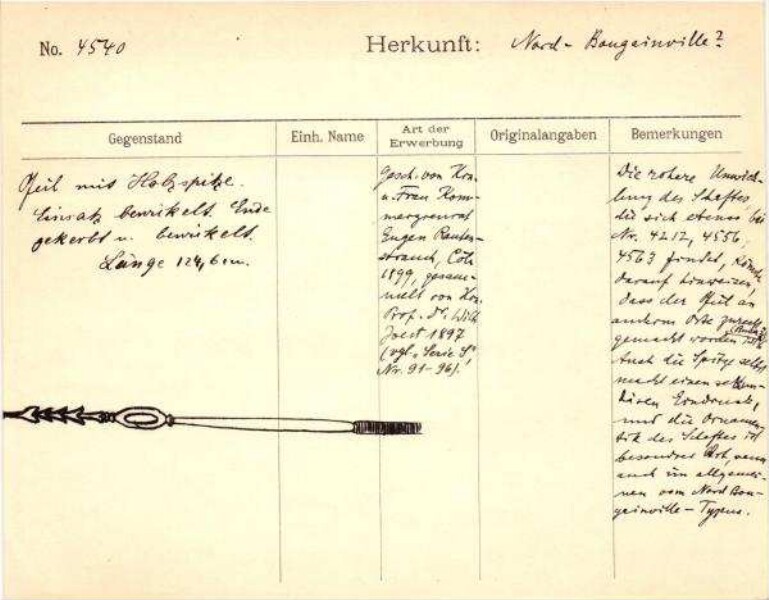 No. 4540 Herkunft: Nord-Bougainville?
Gegenstand
Einh. Name
Art der
Erwerbung
Originalangaben
Bemerkungen
Pfeil mit Holzspitze.
Einsatz bewickelt. Ende
gekerbt u. bewickelt.
Länge 124,6 cm.
Gesch. von Hrn.
u. Frau Kom-
merzienrat
Eugen Rauten-
strauch, Cöln
1899, gesam-
melt von Hrn.
Prof. Dr. Wilh.
Joest 1897
(vgl. Serie S,
Nr. 91-96).
Die rohere Umwick-
lung des Schaftes,
die sich ebenso bei
Nr. 4212, 4556,
4563 findet, könnte
darauf hinweisen,
dass der Pfeil an
anderm Orte zurecht
gemacht worden ist.
Auch die Spitze selbst
macht einen
Eindruck,
und die Ornamen-
tik des Schaftes ist
besondrer Art, wenn
auch im allgemei-
nen vom Nord Bou-
gainville-Typus.